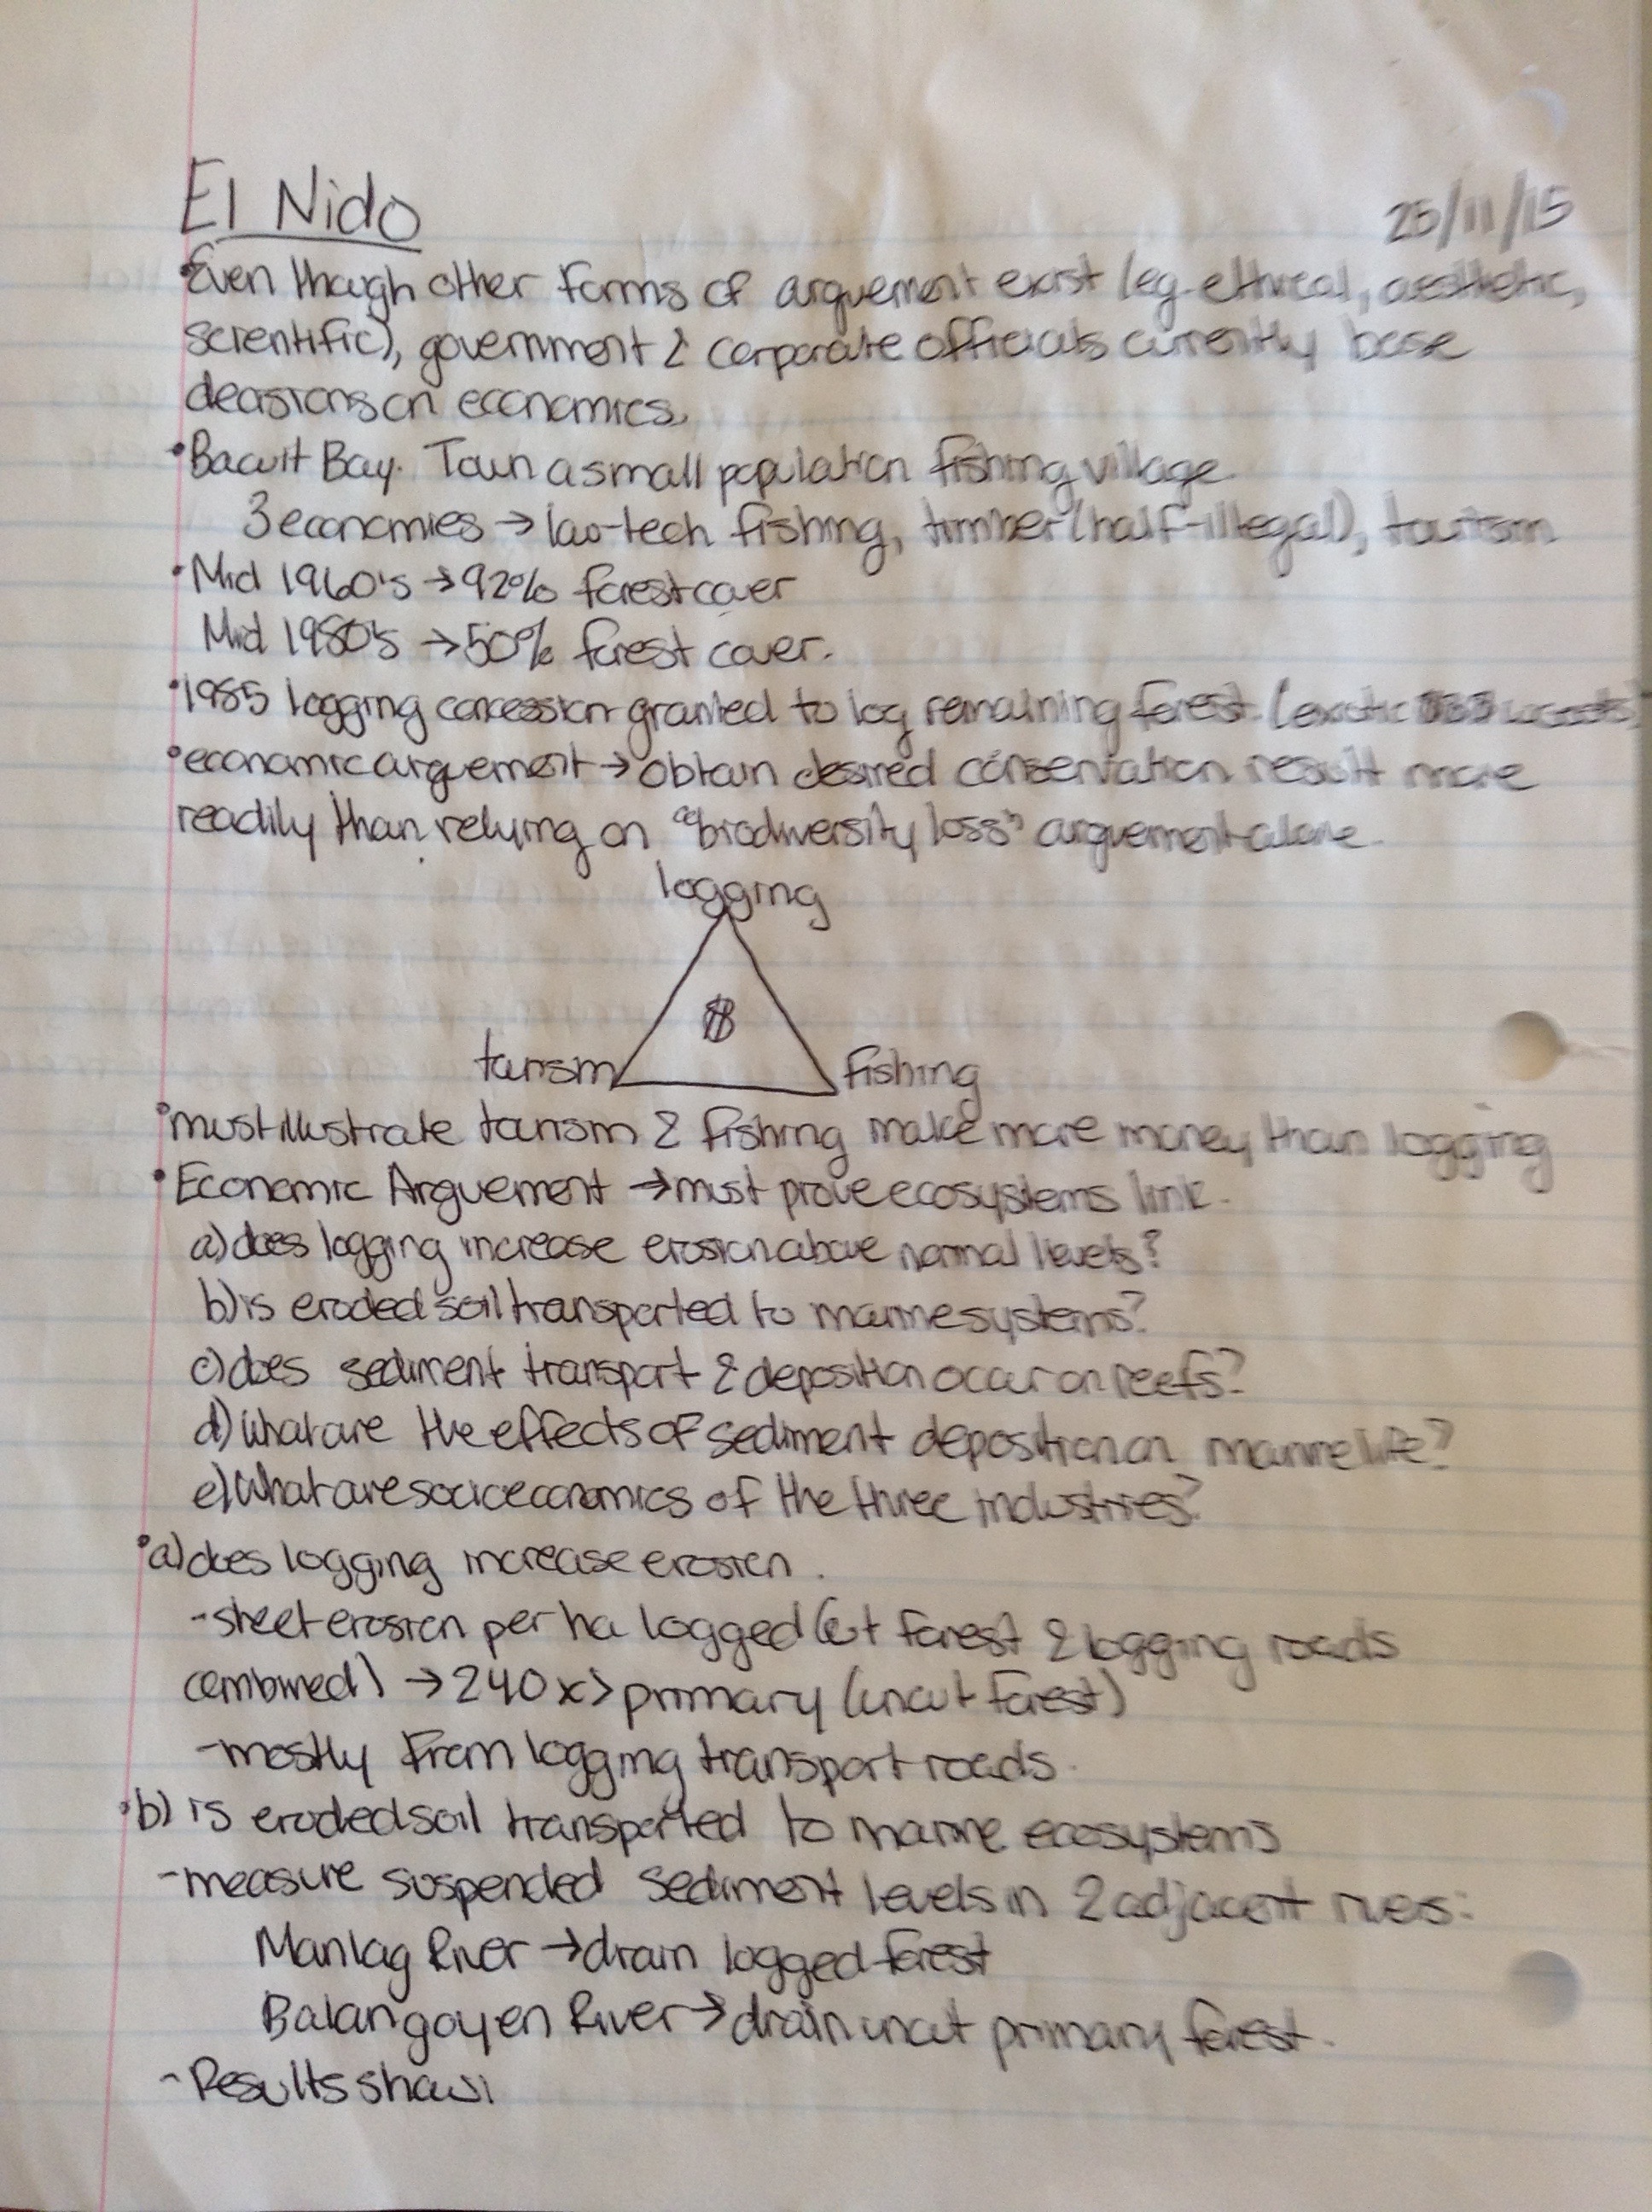 El Nido 25/11/15
•Even though other forms of arguement exist (eg. ethical, aesthetic,
scientific), government & corporate officials currently base
decisions on economics.
•Bacuit Bay. Town a small population fishing village
3 economies → low-tech fishing, timber (half-illegal), tourism
•Mid 1960's → 92% forest cover
Mid 1980's → 50% forest cover.
•1985 logging concession granted to log remaining forest. (exotic woods)
•economic arguement → obtain desired conservation result more
readily than relying on "biodiversity loss" arguement alone.
logging
$
tourism fishing
•must illustrate tourism & fishing make more money than logging
•Economic Arguement → must prove ecosystems link.
a) does logging increase erosion above normal levels?
b) is eroded soil transported to marine systems?
c) does sediment transport & deposition occur on reefs?
d) What are the effects of sediment deposition on marine life?
e) What are socioeconomics of the three industries?
•a) does logging increase erosion.
- sheet erosion per ha logged (cut forest & logging roads
combined) → 240x > primary (uncut forest)
- mostly from logging transport roads.
•b) is eroded soil transported to marine ecosystems
- measure suspended sediment levels in 2 adjacent rivers:
Manlag River → drain logged forest
Balangoyen River → drain uncut primary forest.
- Results show: